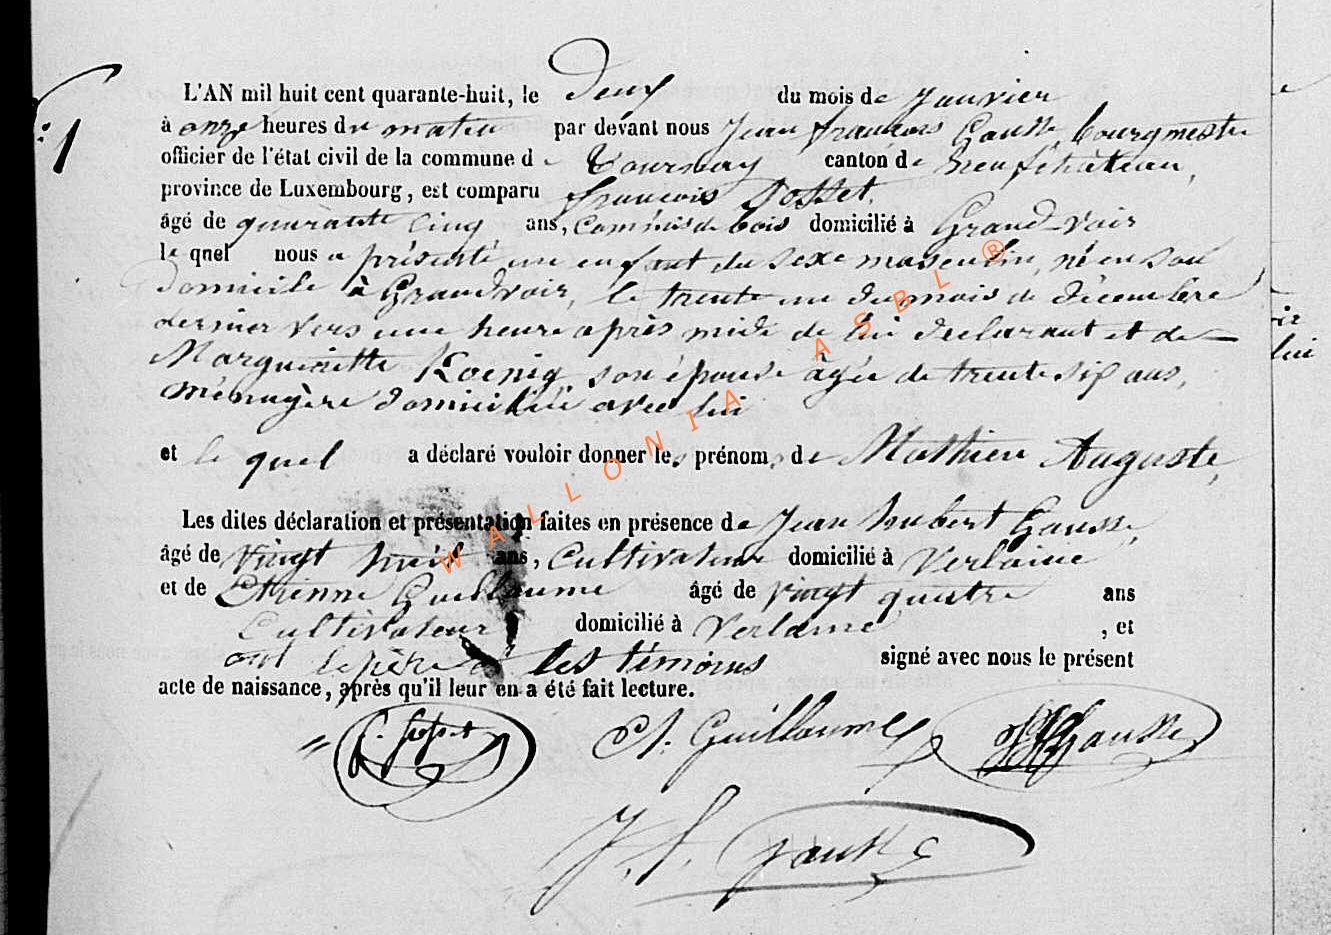 L'AN mil huit cent quarante-huit, le Deux du mois de Janvier
:1 à onze heures du matin par devant nous Jean françois Gausse bourgmestre
officier de l'état civil de la commune de Tournay canton de neufchateau,
province de Luxembourg, est comparu françois
âgé de quarante cinq ans, Commis de bois domicilié à Grand-voir
le quel nous a présenté un enfant du sexe masculin, né en son
domicile à Grandvoir, le trente un du mois de décembre
dernier vers une heure après midi de lui declarant et de
Margueritte Koenig son épouse âgée de trente six ans,
ménagère domiciliée avec lui
et le quel a déclaré vouloir donner les prénoms de Mathieu Auguste,
Les dites déclaration et présentation faites en présence de Jean hubert Gausse,
âgé de vingt huit ans, Cultivateur domicilié à Verlaine
et de Etienne Guillaume âgé de vingt quatre ans
Cultivateur domicilié à Verlaine , et
ont le père et les témoins signé avec nous le présent
acte de naissance, après qu'il leur en a été fait lecture.
Guillaume Gausse
J. f. Gausse
WALLONIA ASBL ®
lui